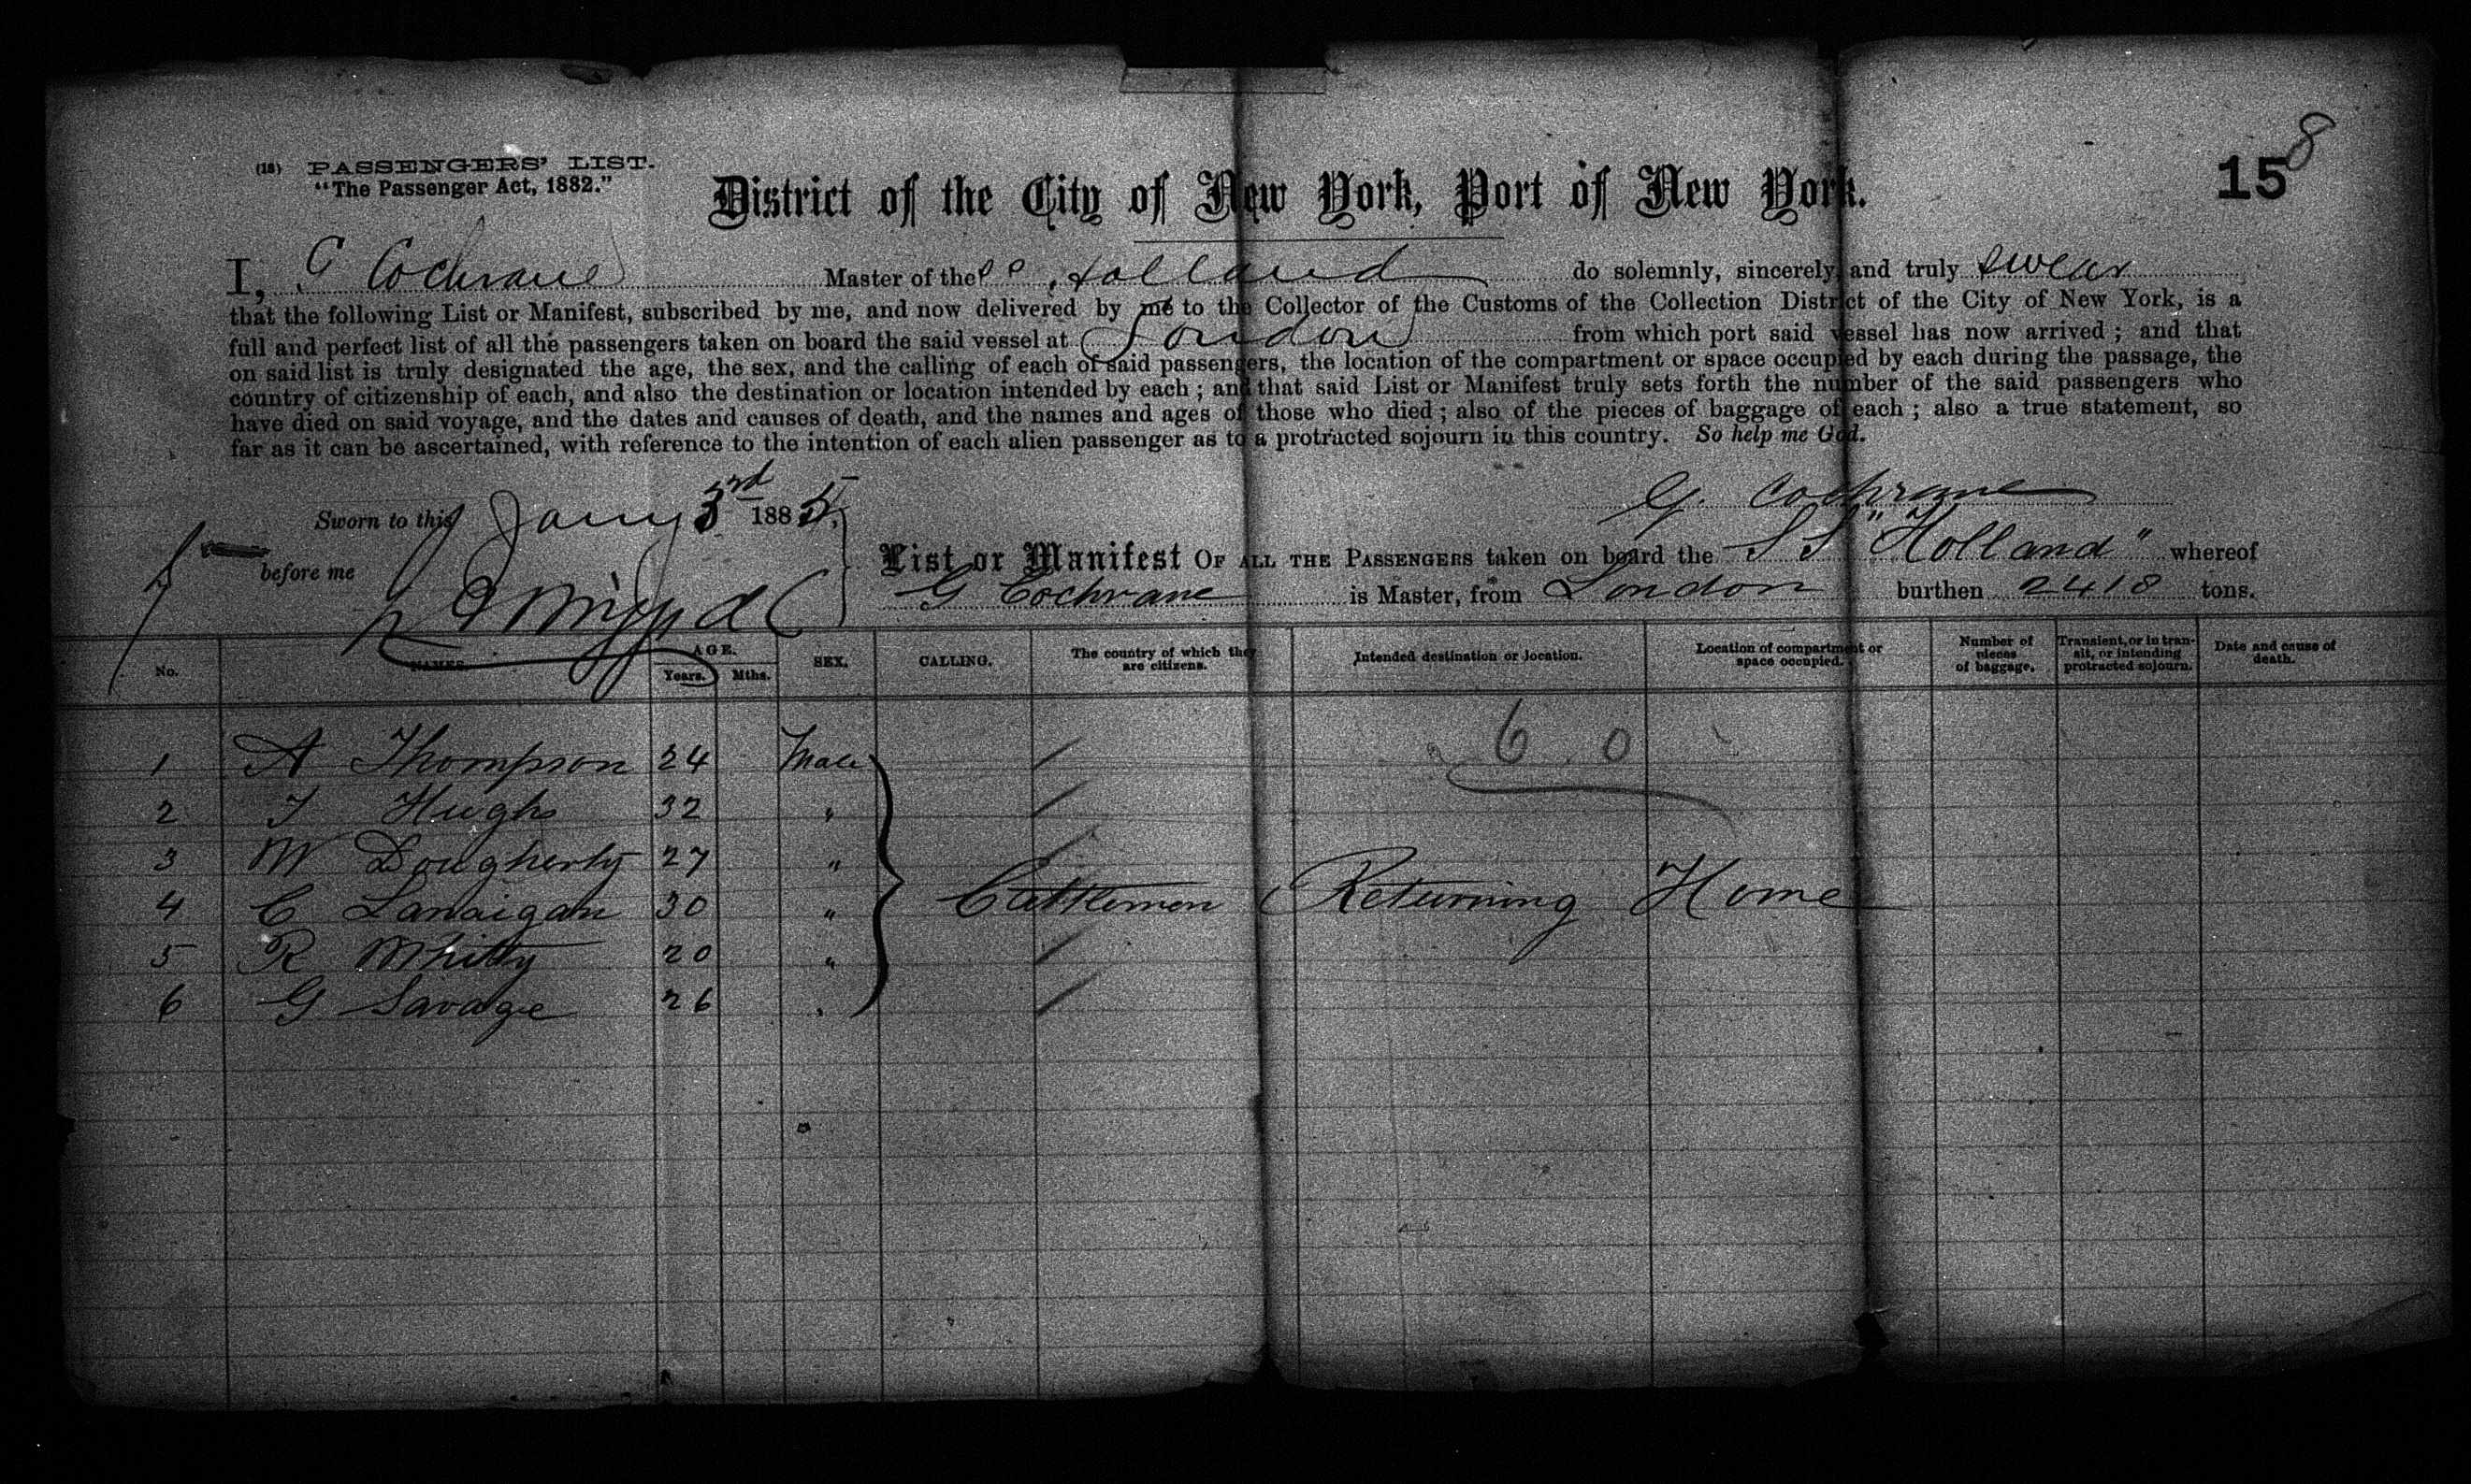 (18) PASSENGERS' LIST.
"The Passenger Act, 1882."
District of the City of New York, Port of New York.
158
I, G Cochrane Master of the SS Holland do solemnly, sincerely and truly swear
that the following List or Manifest, subscribed by me, and now delivered by me to the Collector of the Customs of the Collection District of the City of New York, is a
full and perfect list of all the passengers taken on board the said vessel at London from which port said vessel has now arrived; and that
on said list is truly designated the age, the sex, and the calling of each of said passengers, the location of the compartment or space occupied by each during the passage, the
country of citizenship of each, and also the destination or location intended by each; and that said List or Manifest truly sets forth the number of the said passengers who
have died on said voyage, and the dates and causes of death, and the names and ages of those who died; also of the pieces of baggage of each; also a true statement, so
far as it can be ascertained, with reference to the intention of each alien passenger as to a protracted sojourn in this country. So help me God.
G. Cochrane
Sworn to this Jany 3rd 1885.
before me
List or Manifest OF ALL THE PASSENGERS taken on board the SS "Holland" whereof
G Cochrane is Master, from London burthen 2418 tons.
No. NAMES. AGE. Years. Mths. SEX. CALLING. The country of which they are citizens. Intended destination or location. Location of compartment or space occupied. Number of pieces of baggage. Transient, or in transit, or intending protracted sojourn. Date and cause of death.
6 0
1 A Thompson 24 Male
2 T Hughs 32 "
3 M Dougherty 27 "
4 C Lanaigan 30 " Cattlemen Returning Home
5 R Whitty 20 "
6 G Savage 26 "